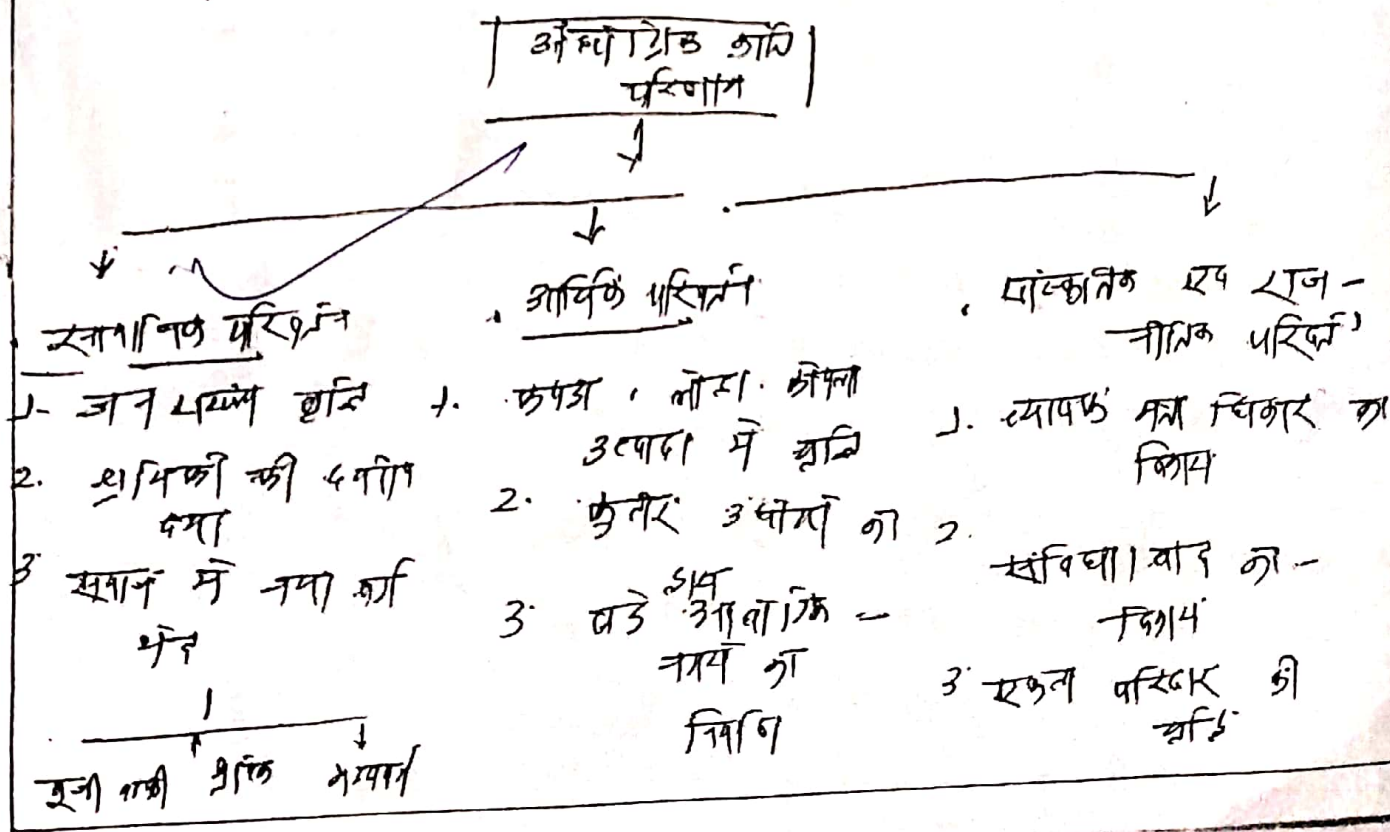 औद्योगिक क्रांति
परिणाम
सामाजिक परिवर्तन
1- जन संख्या वृद्धि
2. श्रमिकों की दयनीय
दशा
3 समाज में नया वर्ग
भेद
पूंजीवादी श्रमिक मध्यवर्ग
आर्थिक परिवर्तन
1. कपडा, लोहा, कोयला
उत्पादन में वृद्धि
2. कुटीर उद्योगों का
ह्रास
3. बडे औद्योगिक -
नगरों का
निर्माण
सांस्कृतिक एवं राज -
नीतिक परिवर्तन
1. व्यापक मताधिकार का
विकास
2. संविधानवाद का -
विकास
3. एकल परिवार की
वृद्धि